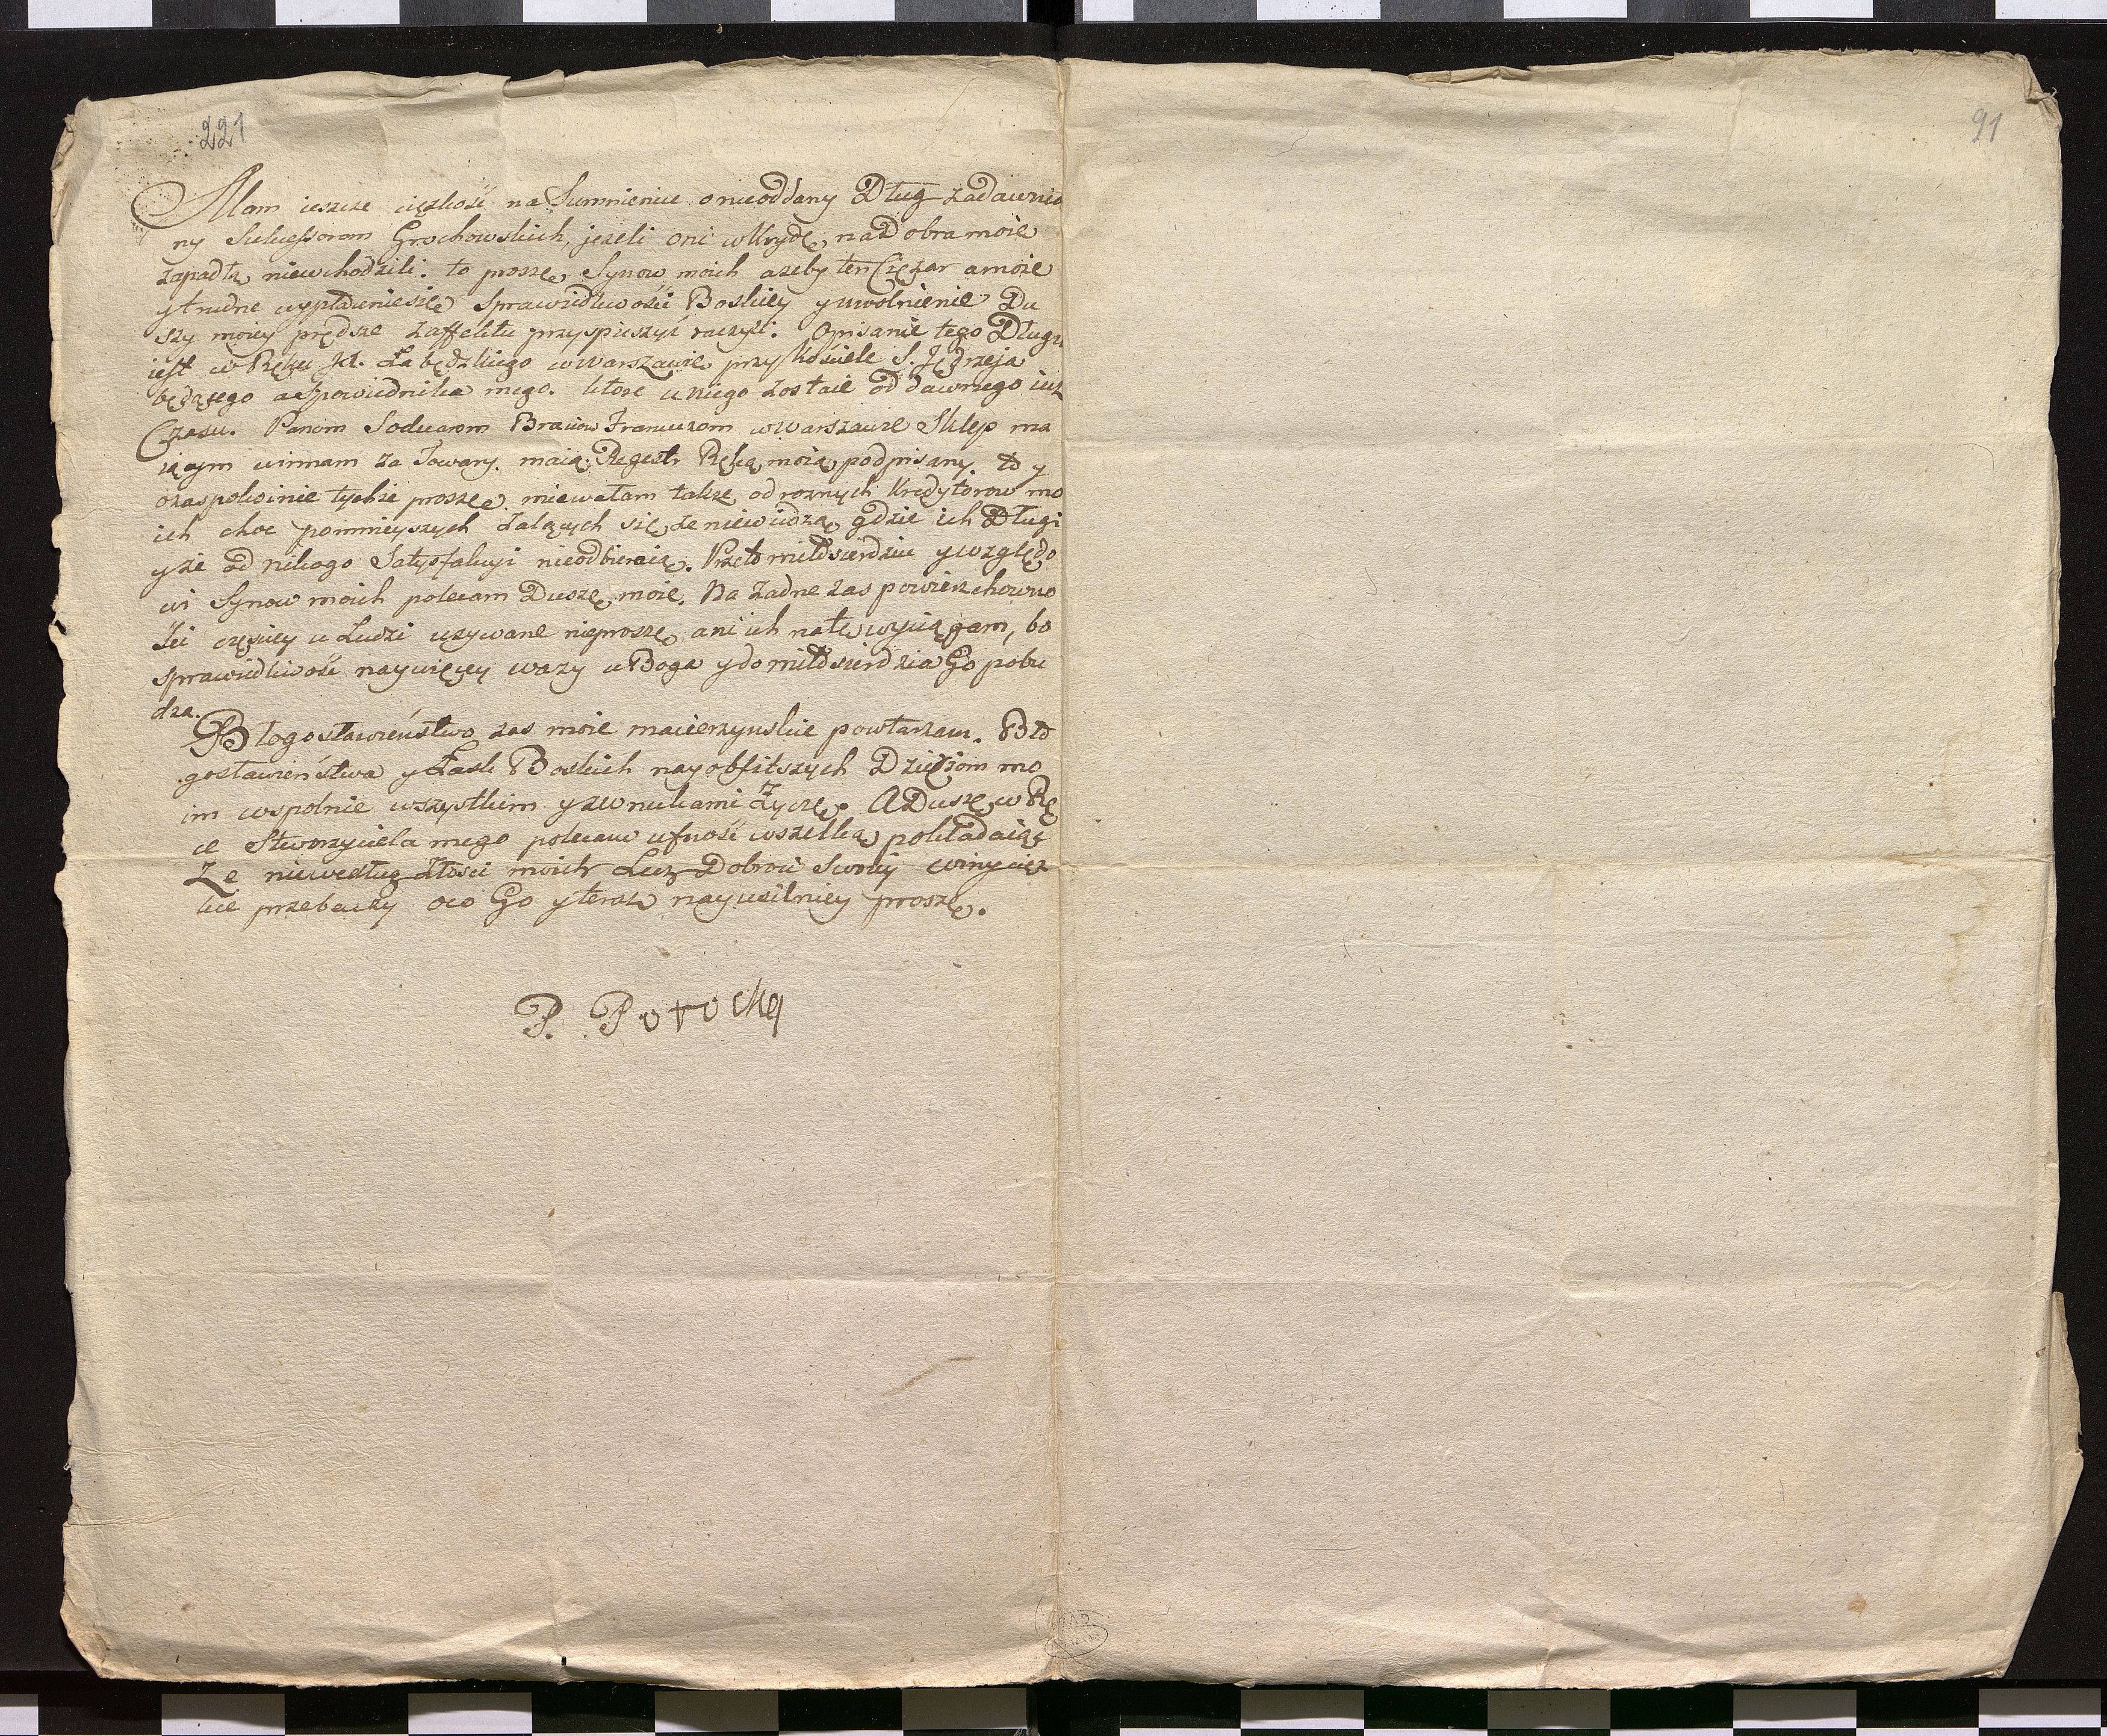 221
91
Mam ieszcze cięzkość na Sumnieniu o nieoddany Dług zadawnio
ny Sukcessorom Grochowskich, jezeli oni w Krydę, na Dobra moie
zapadłą niewchodzili. to proszę Synow moich azeby ten Cięzar a moze
y trudne wypłacenie się Sprawiedliwości Boskiey y uwolnienie Du
szy moiey prędsze z affektu przyspieszyć raczyli. Opisanie tego Długu
iest w Ręku Łabędzkiego w Warszawie przy Kościele S. Jędrzeja
będącego a Spowiednika mego. ktore u niego zostaie od dawnego iuz
Czasu. Panom Braciom Francuzom w Warszawie Sklep ma
iącym winnam za Towary. maią Regestr Ręką moią podpisany. to y
o zaspokoinie tychze proszę. miewałam takze od roznych Kredytorow mo
ich choc pomnieyszych zalących się ze niewidzą gdzie ich Długi
y ze od nikogo Satysfakcyi nieodbieraią. Przeto miłosierdziu y względo
wi Synow moich polecam Duszę moię. Na zadne zas powierzchowno
ści częściey u Ludzi uzywane nieproszę ani ich na to wyciągam, bo
sprawiedliwość naywięcey wazy u Boga y do miłosierdzia Go pobu
dza.
Błogosławieństwo zas moie macierzynskie powtarzam. Bło
gosławieństwa y Łask Boskich nayobfitszych Dzieciom mo
im wspolnie wszystkim y z wnukami Zyczę. A Duszę w Rę
ce Stworzyciela mego polecam ufność wszelką pokładaiąc
Ze niewedług złości moich Lecz Dobroci Swoiey winy cięz
kie przebaczy oco Go y teraz nayusilniey proszę.
P. Potocka